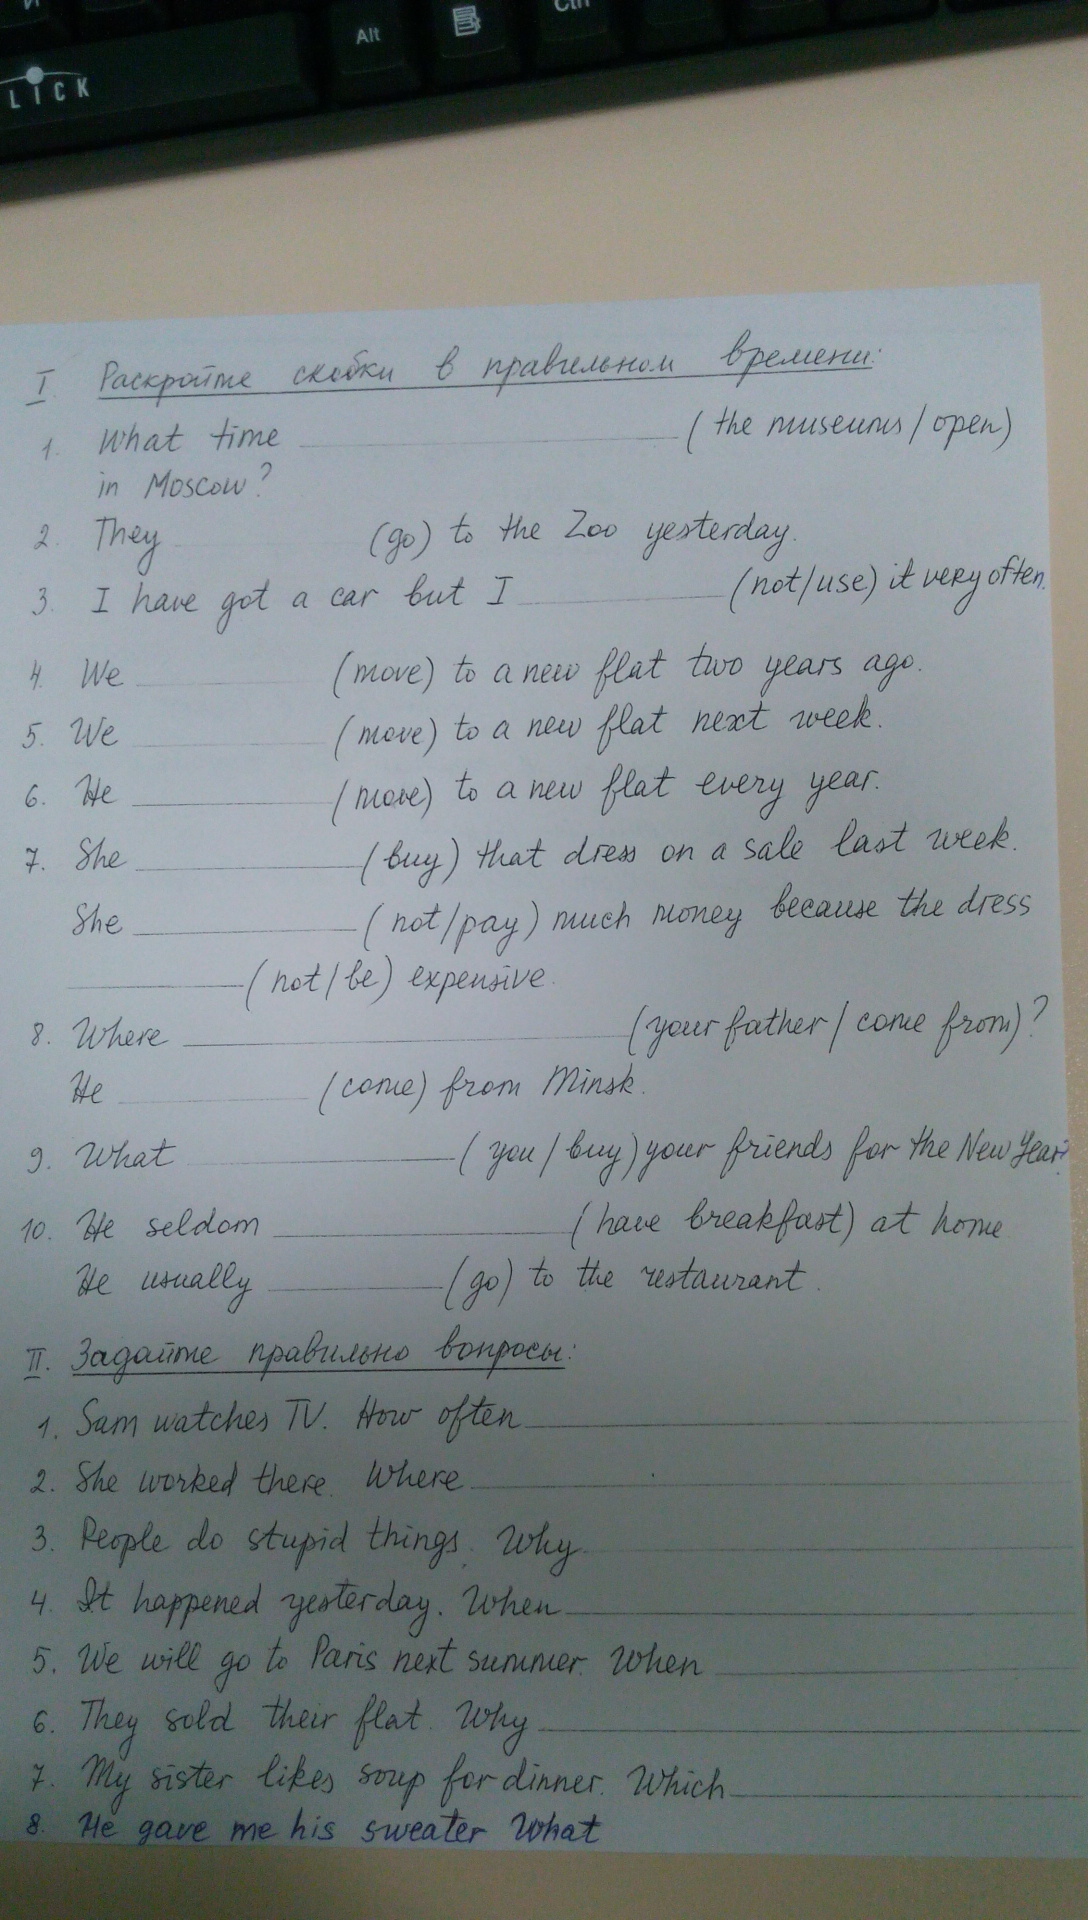 LICK
Alt
Ctrl
I Раскройте скобки в правильном времени:
1. What time ____ (the museums/open)
in Moscow?
2. They ____ (go) to the Zoo yesterday.
3. I have got a car but I ____ (not/use) it very often.
4. We ____ (move) to a new flat two years ago.
5. We ____ (move) to a new flat next week.
6. He ____ (move) to a new flat every year.
7. She ____ (buy) that dress on a sale last week.
She ____ (not/pay) much money because the dress
____ (not/be) expensive.
8. Where ____ (your father/come from)?
He ____ (come) from Minsk.
9. What ____ (you/buy) your friends for the New Year?
10. He seldom ____ (have breakfast) at home
He usually ____ (go) to the restaurant.
II. Задайте правильно вопросы:
1. Sam watches TV. How often ____
2. She worked there. Where ____
3. People do stupid things. Why ____
4. It happened yesterday. When ____
5. We will go to Paris next summer. When ____
6. They sold their flat. Why ____
7. My sister likes soup for dinner. Which ____
8. He gave me his sweater What